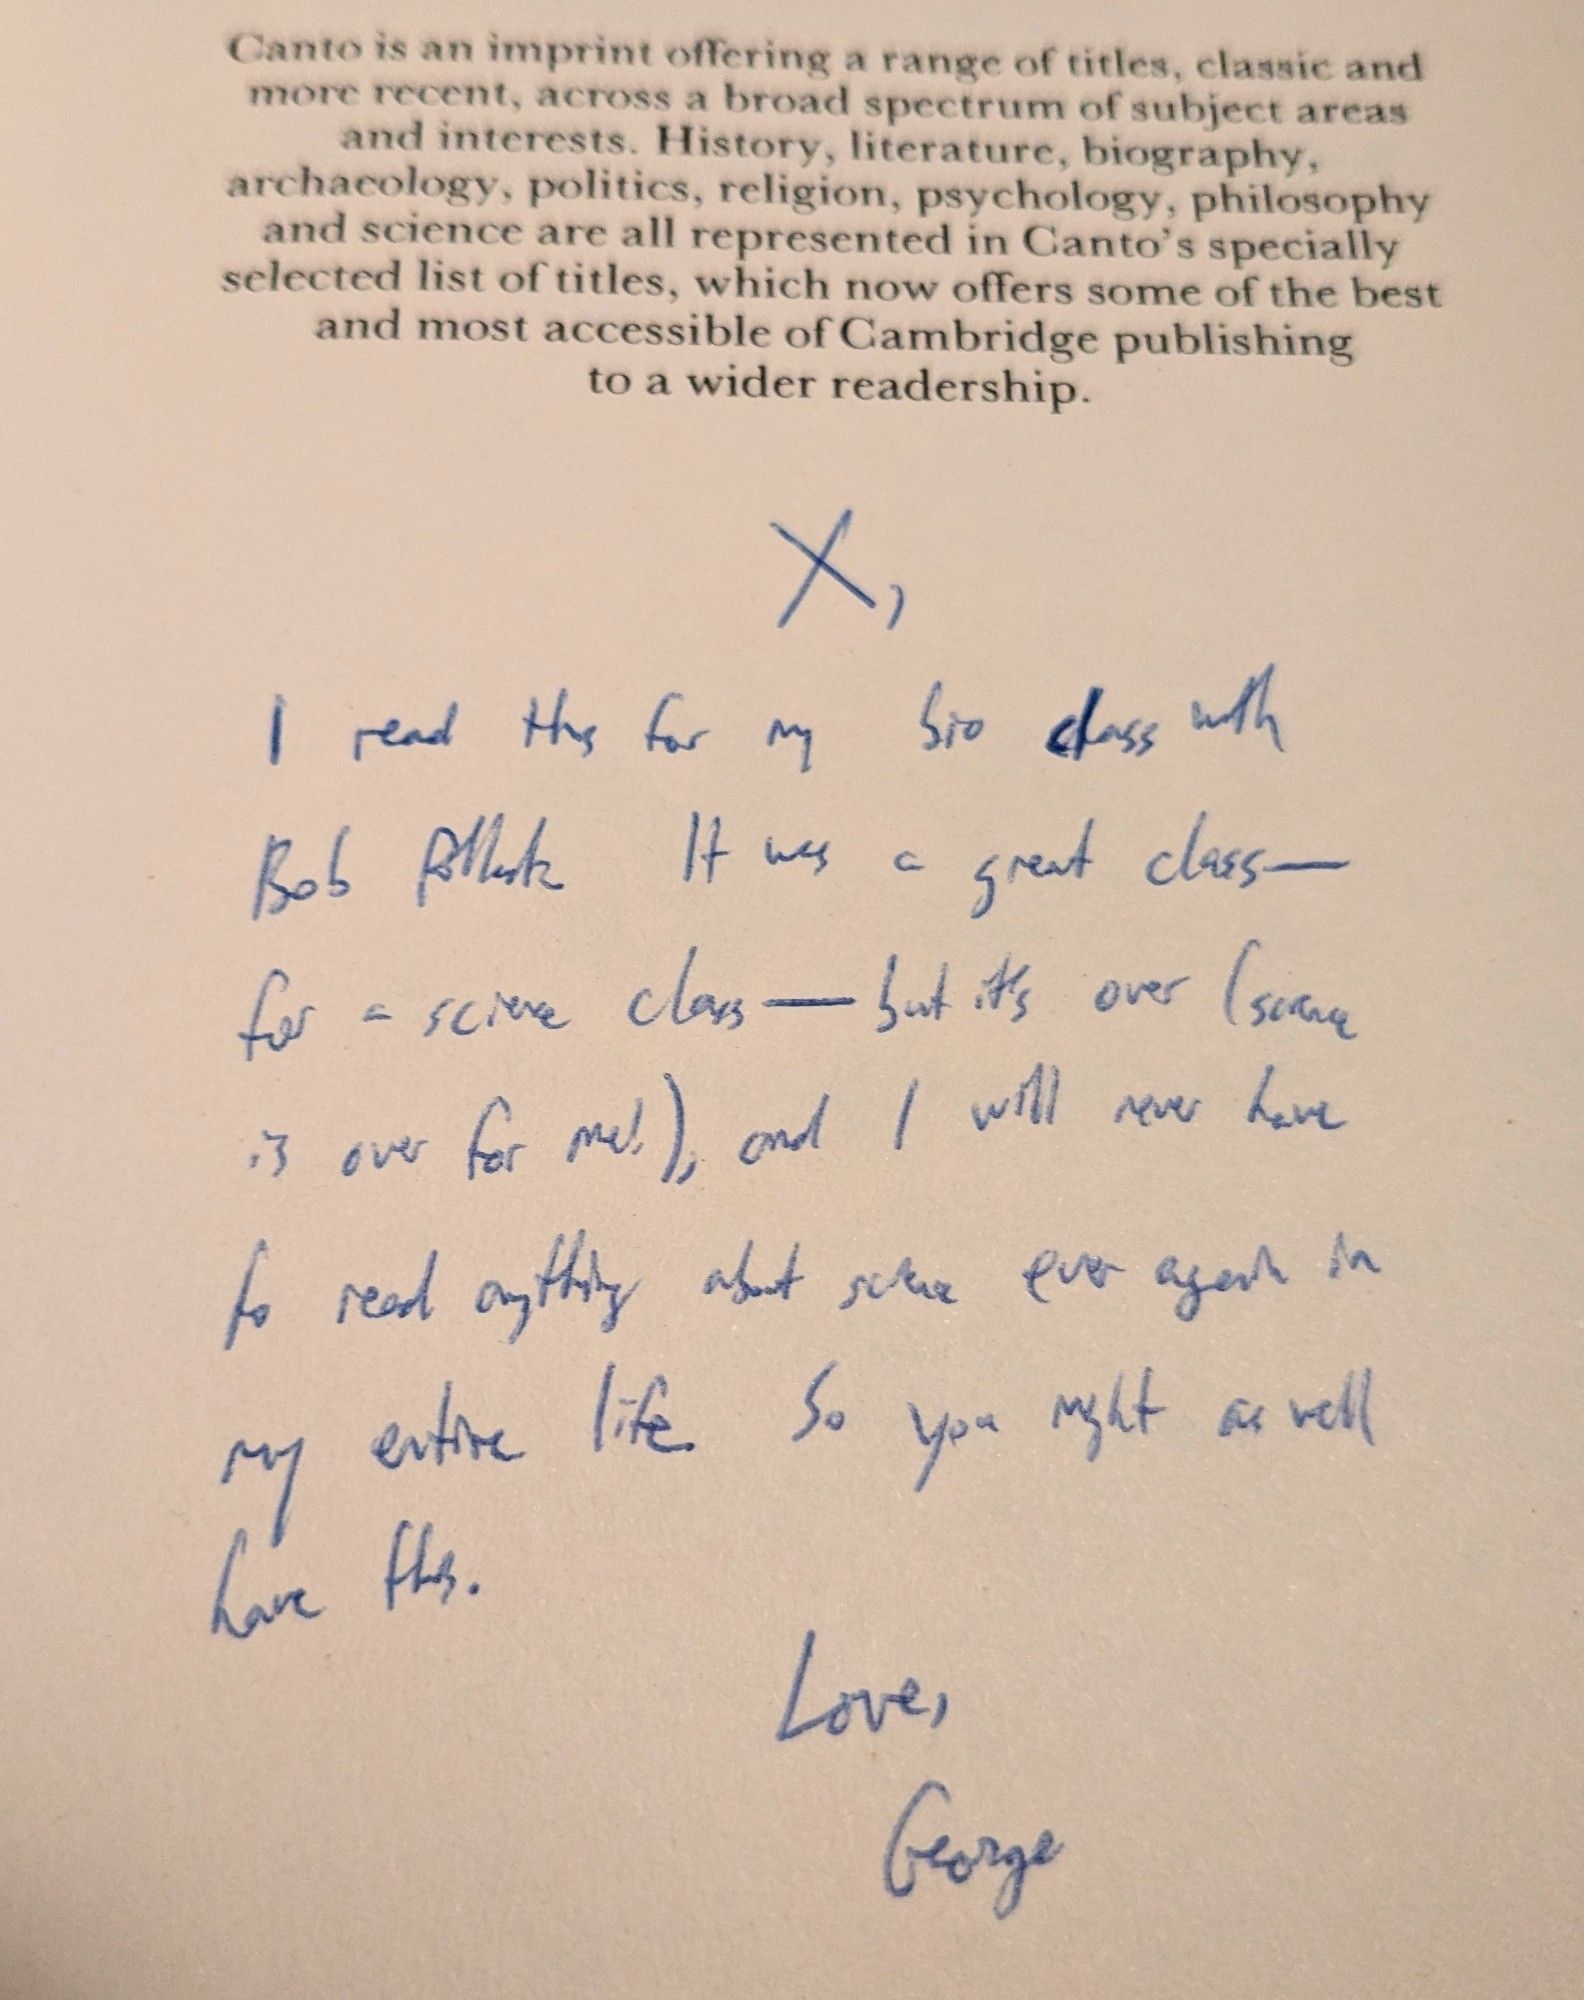 Canto is an imprint offering a range of titles, classic and
more recent, across a broad spectrum of subject areas
and interests. History, literature, biography,
archaeology, politics, religion, psychology, philosophy
and science are all represented in Canto's specially
selected list of titles, which now offers some of the best
and most accessible of Cambridge publishing
to a wider readership.
X,
I read this for my bio class with
Bob Pollack It was a great class—
for a science class — but it's over (science
is over for me!), and I will never have
to read anything about science ever again in
my entire life. So you might as well
have this.
Love,
George